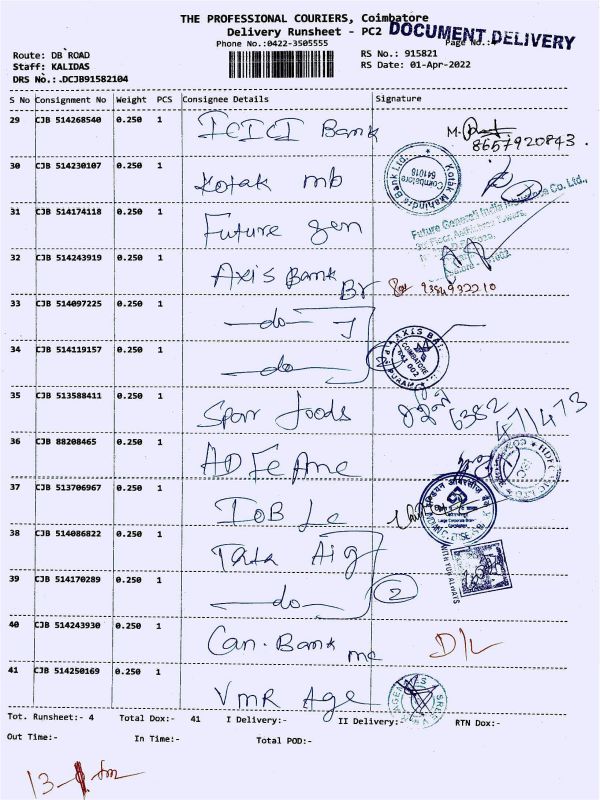 THE PROFESSIONAL COURIERS, Coimbatore
Delivery Runsheet - PC2
DOCUMENT DELIVERY
Phone No.:0422-3505555
Page No.:-
Route: DB ROAD
Staff: KALIDAS
DRS No.:.DCJB91582104
RS No.: 915821
RS Date: 01-Apr-2022
S No Consignment No Weight PCS Consignee Details Signature
29 CJB 514268540 0.250 1 ICICI Bank
8657920843.
30 CJB 514230107 0.250 1 Kotak mb
Kotak Mahindra Bank Ltd. Coimbatore 641018
31 CJB 514174118 0.250 1 Future gen
Future Generali India Insurance Co. Ltd.,
32 CJB 514243919 0.250 1 Axis Bank Br
33 CJB 514097225 0.250 1 -do-
34 CJB 514119157 0.250 1 -do-
AXIS BA
COIMBATORE
35 CJB 513588411 0.250 1 Foods
6382 471473
36 CJB 88208465 0.250 1
37 CJB 513706967 0.250 1 IOB
Large Corporate Branch
38 CJB 514086822 0.250 1 Tata Aig
WITH YOU ALWAYS
39 CJB 514170289 0.250 1 -do- 2
40 CJB 514243930 0.250 1 Can. Bank mc D/L
41 CJB 514250169 0.250 1 VMR Age
Tot. Runsheet:- 4 Total Dox:- 41 I Delivery:- II Delivery:- RTN Dox:-
Out Time:- In Time:- Total POD:-
13